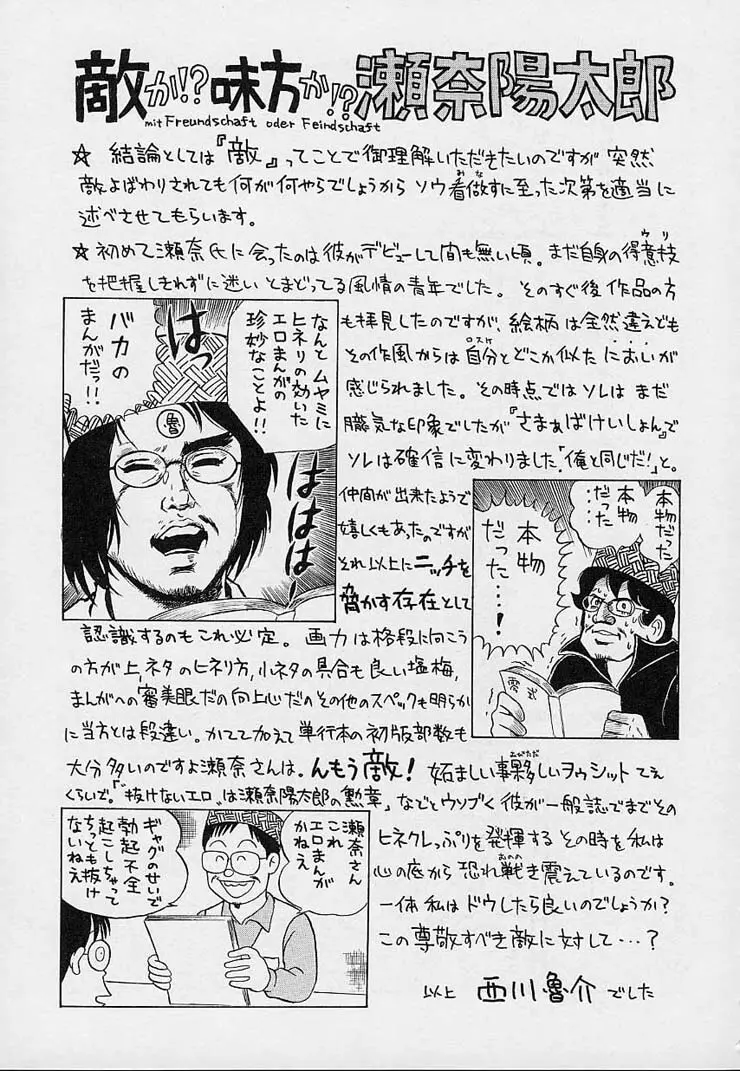 敵か!?味方か!?瀬奈陽太郎
mit Freundschaft oder Feindschaft
☆ 結論としては『敵』ってことで御理解いただきたいのですが 突然
敵よばわりされても何が何やらでしょうから ソウ看做すに至った次第を適当に
みな
述べさせてもらいます。
☆ 初めて瀬奈氏に会ったのは彼がデビューして間も無い頃。まだ自身の得意技
ウリ
を把握しきれずに迷い とまどってる風情の青年でした。 そのすぐ後 作品の方
も拝見したのですが、絵柄は全然違えども
その作風からは自分とどこか似た においが
ロスケ
感じられました。その時点ではソレは まだ
朧気な印象でしたが『さまぁばけいしょん』で
ソレは確信に変わりました「俺と同じだ!」と。
仲間が出来たようで
嬉しくもあったのですが
それ以上にニッチを
脅かす存在として
認識するのもこれ必定。 画力は格段に向こう
の方が上、ネタのヒネリ方、小ネタの具合も良い塩梅、
まんがへの審美眼だの向上心だのその他のスペックも明らか
に当方とは段違い。かてて加えて単行本の初版部数も
大分多いのですよ瀬奈さんは。んもう敵! 妬ましい事夥しいヲゥシットてぇ
おびただ
くらいで。「"抜けないエロ"は瀬奈陽太郎の勲章」などとウソブく彼が一般誌でまでその
ヒネクレっぷりを発揮する その時を私は
心の底から恐れ戦き震えているのです。
おのの
一体 私はドウしたら良いのでしょうか?
この尊敬すべき敵に対して…?
以上 西川魯介 でした
なんとムヤミに
ヒネリの効いた
エロまんがの
珍妙なことよ!!
はっ
ははは
バカの
まんがだっ!!
魯
本物だった
本物
だった…
本物
だった…!
零式
瀬奈さん
これ
エロまんが
かねえ
ギャグのせいで
勃起不全
起こしちゃって
ちっとも抜け
ないねえ